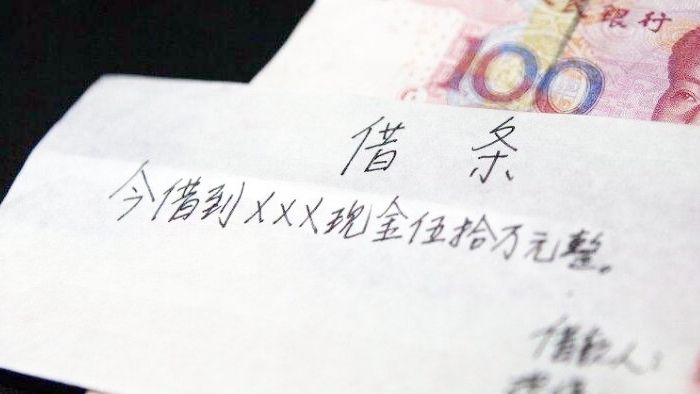 民银行
100
借条
今借到XXX现金伍拾万元整。
借款人: